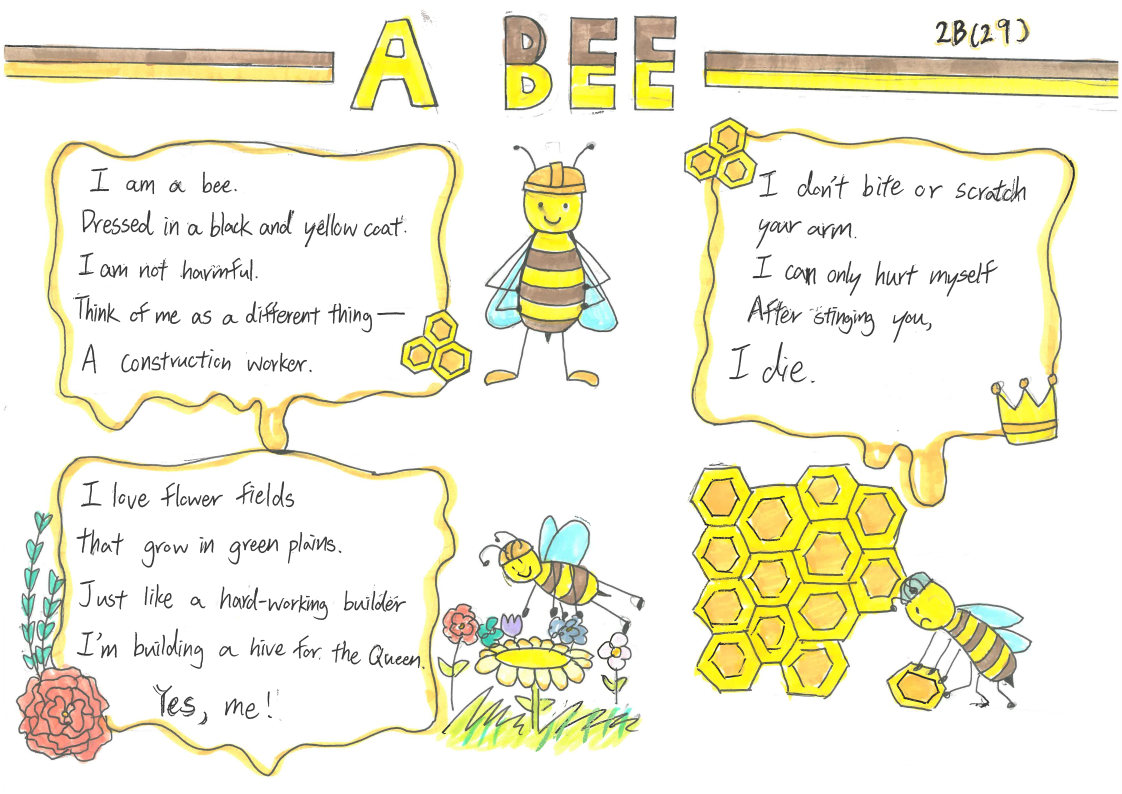 A BEE
2B(29)
I am a bee.
Dressed in a black and yellow coat.
I am not harmful.
Think of me as a different thing—
A construction worker.
I love flower fields
that grow in green plains.
Just like a hard-working builder
I'm building a hive for the Queen.
Yes, me!
I don't bite or scratch
your arm.
I can only hurt myself
After stinging you,
I die.